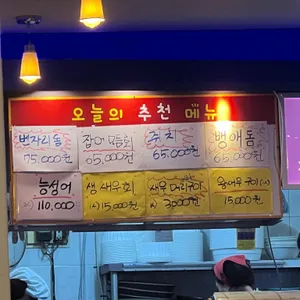 오늘의 추천 메뉴
벤자리돔
75.000원
잡어모듬회
65.000원
쥐치
65.000원
뱅애돔
65.000원
능성어
110.000
생 새우회
15000원
새우 머리구이
3000원
왕새우 구이
15.000원